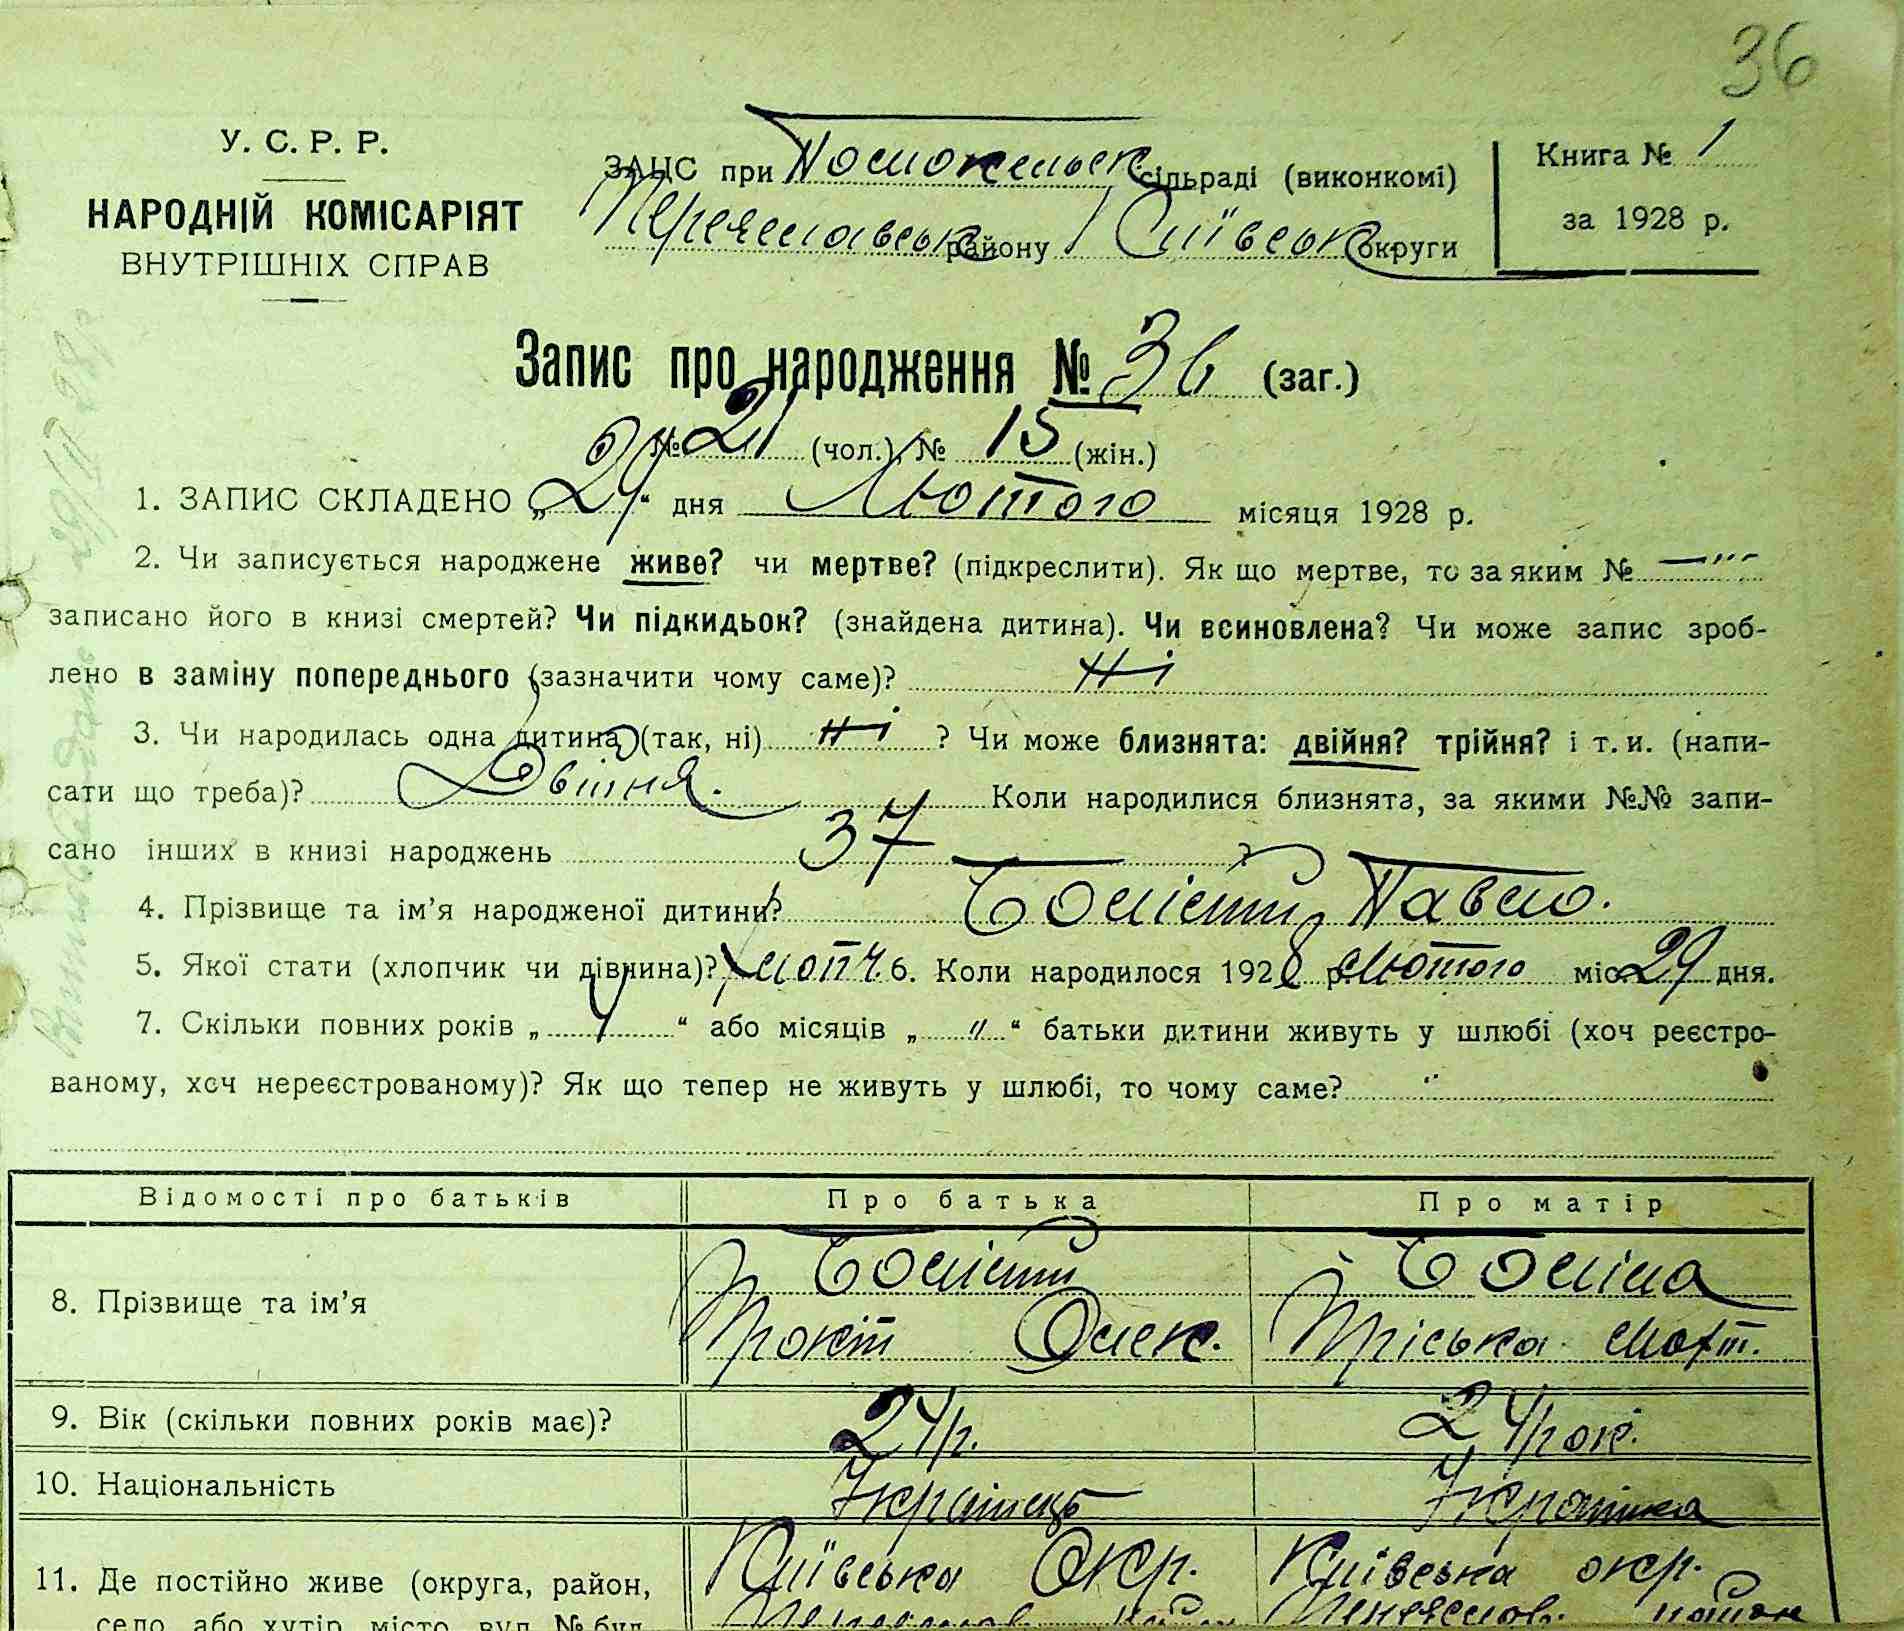 36
У. С. Р. Р.
НАРОДНІЙ КОМІСАРІЯТ
ВНУТРІШНІХ СПРАВ
ЗАЦС при сільраді (виконкомі)
Переяславськ району Київськ округи
Книга № 1
за 1928 р.
Запис про народження № 36 (заг.)
№ 21 (чол.), № 15 (жін.)
1. ЗАПИС СКЛАДЕНО „29“ дня Лютого місяця 1928 р.
2. Чи записується народжене живе? чи мертве? (підкреслити). Як що мертве, то за яким № —
записано його в книзі смертей? Чи підкидьок? (знайдена дитина). Чи всиновлена? Чи може запис зроб-
лено в заміну попереднього (зазначити чому саме)? Ні
3. Чи народилась одна дитина (так, ні) ні ? Чи може близнята: двійня? трійня? і т. и. (напи-
сати що треба)? Двійня. Коли народилися близнята, за якими №№ запи-
сано інших в книзі народжень 37 ?
4. Прізвище та ім’я народженої дитини? Павло.
5. Якої стати (хлопчик чи дівчина)? Хлопч. 6. Коли народилося 1928 р. Лютого міс. 29 дня.
7. Скільки повних років „ 4 “ або місяців „ “ батьки дитини живуть у шлюбі (хоч реєстро-
ваному, хоч нереєстрованому)? Як що тепер не живуть у шлюбі, то чому саме?
Відомості про батьків Про батька Про матір
8. Прізвище та ім’я
Олек. Пріська Март.
9. Вік (скільки повних років має)? 24 р. 24 рок.
10. Національність Українець Українка
11. Де постійно живе (округа, район, Київська Окр. Київська окр.
село, або хутір, місто, вул. № буд.